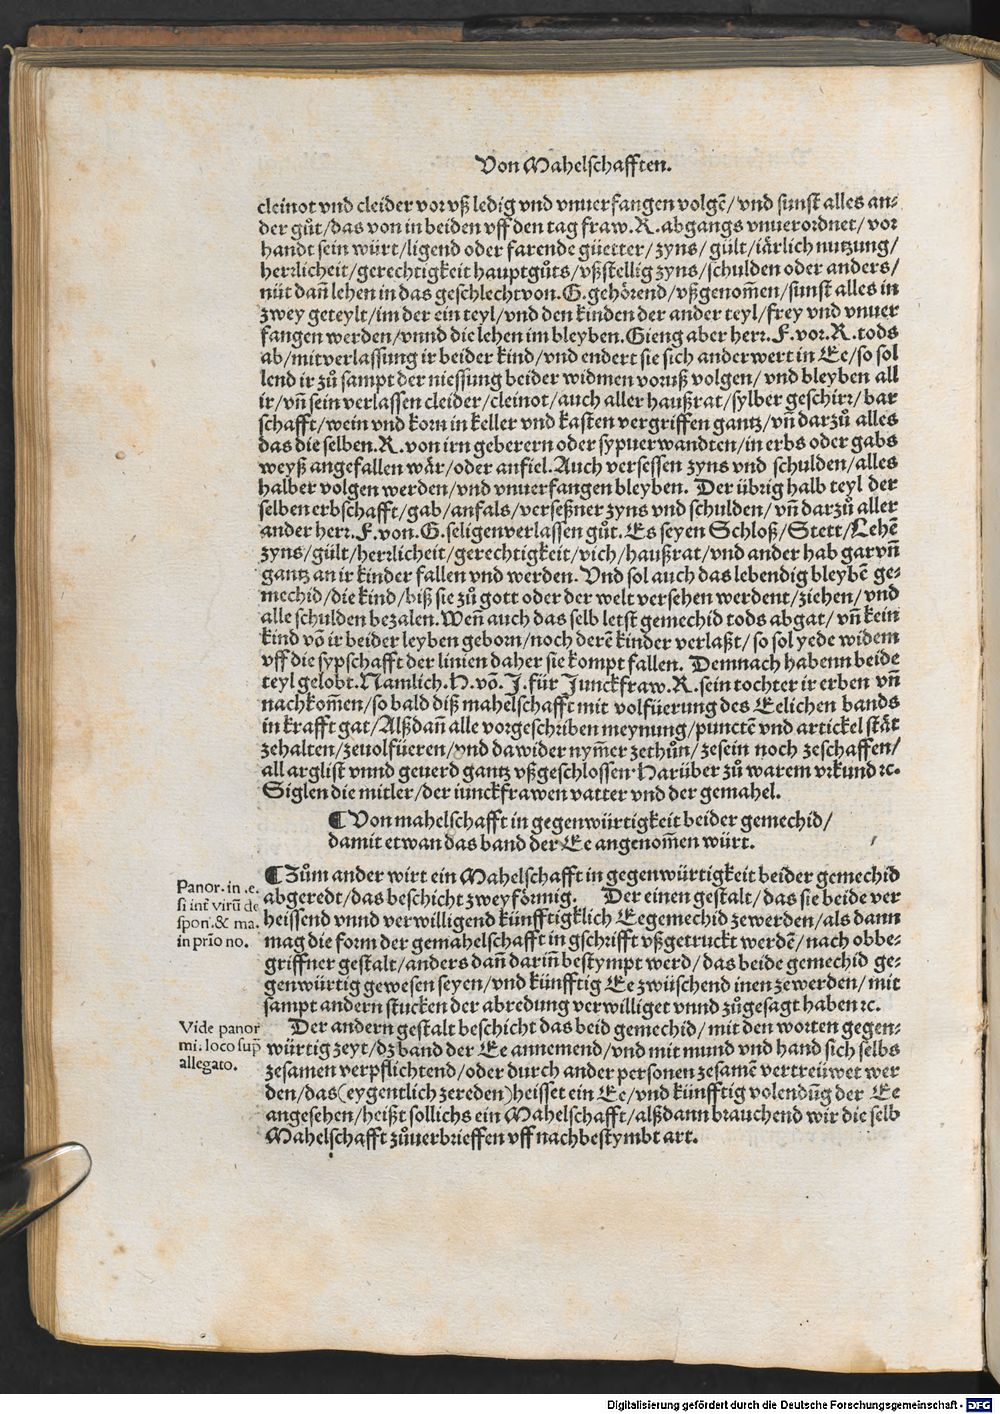 Von Mahelschafften.
cleinot vnd cleider vor vß ledig vnd vnuerfangen volgē/ vnd sunst alles an⸗
der gůt/das von in beiden vff den tag fraw. R. abgangs vnuerordnet/ vor
handt sein würt/ligend oder farende güetter/ zyns/ gült/iärlich nutzung/
herrlicheit/gerechtigkeit hauptgůts/vßstellig zyns/schulden oder anders/
nüt dañ lehen in das geschlecht von. G. gehörend/vßgenom̄en/sunst alles in
zwey geteylt/im der ein teyl/vnd den kinden der ander teyl/frey vnd vnuer
fangen werden/vnnd die lehen im bleyben. Gieng aber herr. F. vor. R. tods
ab/mit verlassung ir beider kind/vnd endert sie sich anderwert in Ee/so sol
lend ir zů sampt der niessung beider widmen voruß volgen/ vnd bleyben all
ir/vñ sein verlassen cleider/cleinot/auch aller haußrat/sylber geschirr/bar
schafft/wein vnd korn in keller vnd kasten vergriffen gantz/vñ darzů alles
das die selben. R. von irn geberern oder sypuerwandten/in erbs oder gabs
weyß angefallen wär/oder anfiel. Auch versessen zyns vnd schulden/alles
halber volgen werden/vnd vnuerfangen bleyben. Der übrig halb teyl der
selben erbschafft/gab/anfals/verseßner zyns vnd schulden/vñ darzů aller
ander herr. F. von. G. seligen verlassen gůt. Es seyen Schloß/Stett/Lehē
zyns/gült/herrlicheit/gerechtigkeit/vich/haußrat/vnd ander hab gar vñ
gantz an ir kinder fallen vnd werden. Vnd sol auch das lebendig bleybē ge⸗
mechid/die kind/biß sie zů gott oder der welt versehen werdent/ziehen/vnd
alle schulden bezalen. Weñ auch das selb letst gemechid tods abgat/ vñ kein
kind võ ir beider leyben geborn/noch derē kinder verlaßt/so sol yede widem
vff die sypschafft der linien daher sie kompt fallen. Demnach habenn beide
teyl gelobt. Namlich. H. võ. J. für Junckfraw. R. sein tochter ir erben vñ
nachkom̄en/so bald diß mahelschafft mit volfüerung des Eelichen bands
in krafft gat/Alßdañ alle vorgeschriben meynung/punctē vnd artickel stät
zehalten/zeuolfüeren/vnd dawider nym̄er zethůn/zesein noch zeschaffen/
all arglist vnnd geuerd gantz vßgeschlossen Harüber zů warem vrkund ꝛc.
Siglen die mitler/der iunckfrawen vatter vnd der gemahel.
¶ Von mahelschafft in gegenwürtigkeit beider gemechid/
damit etwan das band der Ee angenom̄en würt.
¶ Zům ander wirt ein Mahelschafft in gegenwürtigkeit beider gemechid
abgeredt/das beschicht zwey förmig. Der einen gestalt/das sie beide ver
heissend vnnd verwilligend künfftigklich Eegemechid zewerden/als dann
mag die form der gemahelschafft in gschrifft vßgetruckt werdē/nach obbe⸗
griffner gestalt/anders dañ dariñ bestympt werd/das beide gemechid ge⸗
genwürtig gewesen seyen/vnd künfftig Ee zwüschend inen zewerden/mit
sampt andern stucken der abredung verwilliget vnnd zůgesagt haben ꝛc.
Panor. in .c.
si int̄ virū de
spon. & ma.
in prīo no.
Der andern gestalt beschicht das beid gemechid/mit den worten gegen⸗
würtig zeyt/dz band der Ee annemend/vnd mit mund vnd hand sich selbs
zesamen verpflichtend/oder durch ander personen zesamē vertreüwet wer
den/das(eygentlich zereden)heisset ein Ee/vnd künfftig volendūg der Ee
angesehen/heißt sollichs ein Mahelschafft/alßdann brauchend wir die selb
Mahelschafft zůuerbrieffen vff nachbestymbt art.
Vide panor
mi: loco sup̄
allegato.
Digitalisierung gefördert durch die Deutsche Forschungsgemeinschaft - DFG